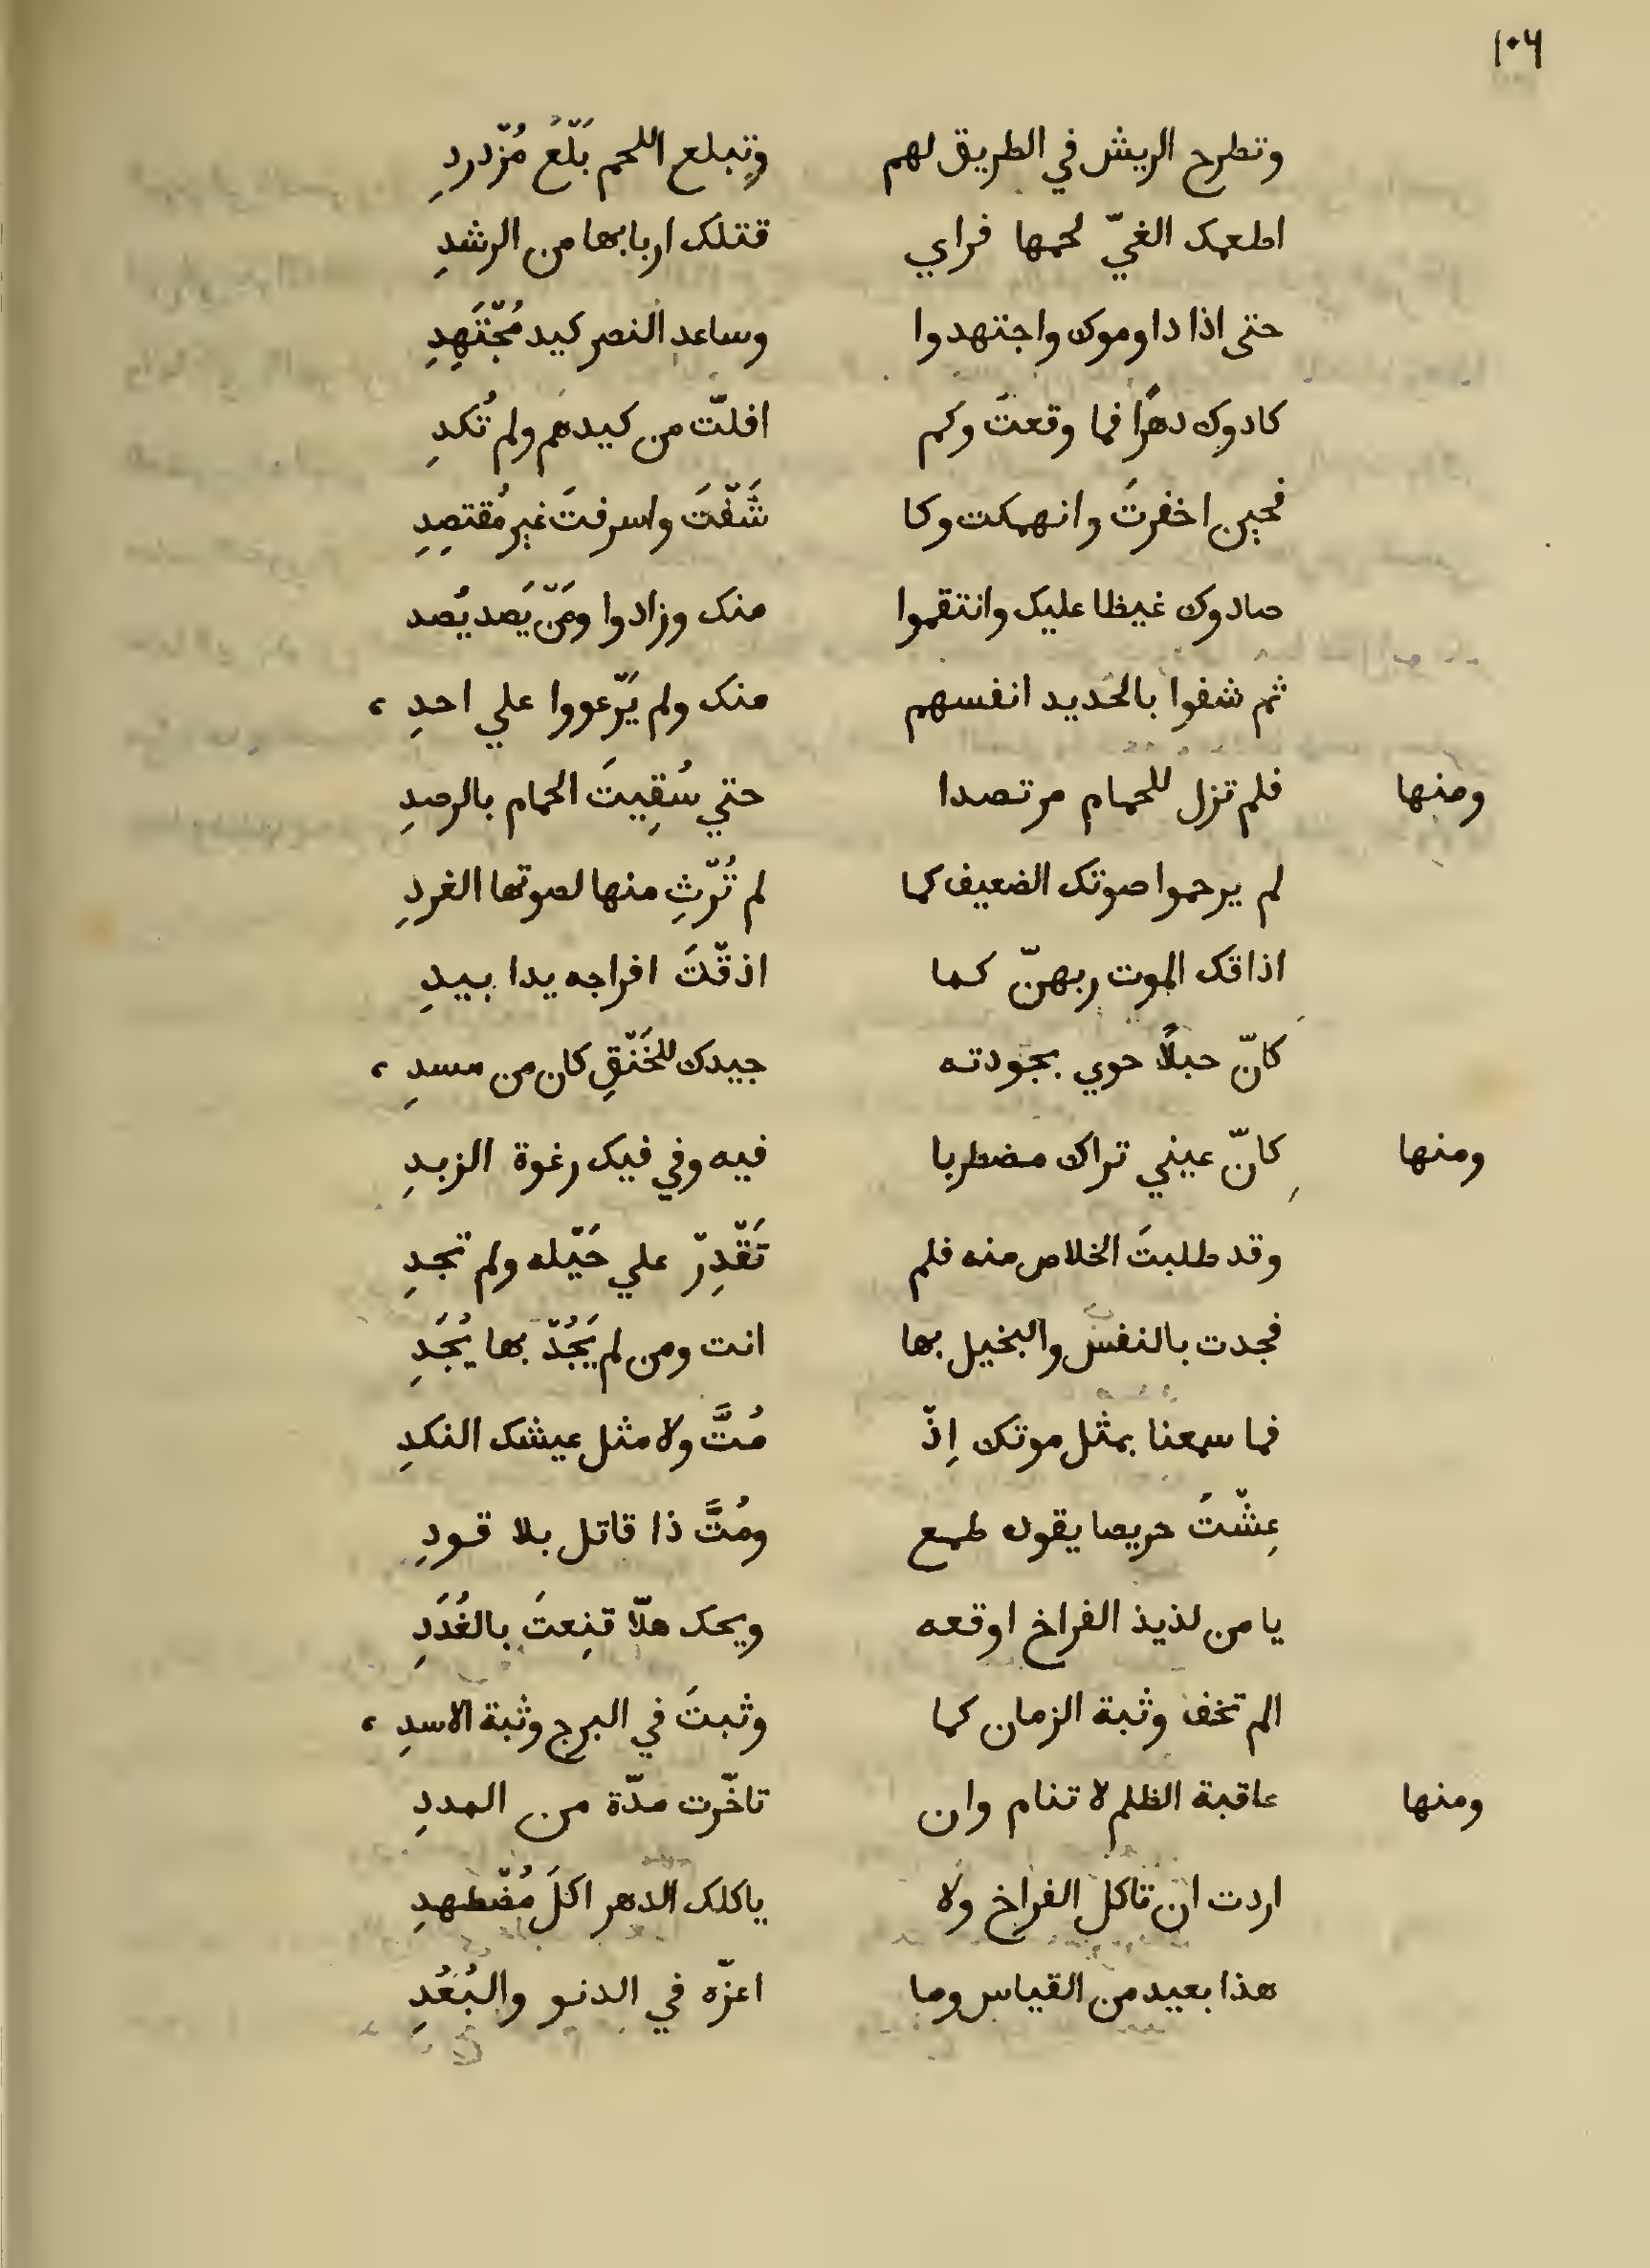 ١٠٦
وتطرح الريش في الطريق لهم وتبلع اللحم بَلْعُ مُزْدردِ
اطعمك الغيّ لحمها فراي قتلك اربابها من الرشدِ
حتى اذا داوموك واجتهدوا وساعد النصر كيد مُجْتَهِدِ
كادوك دهرًا فما وقعتَ وكم افلتّ من كيدهم ولم تُكدِ
فحين اخفرتَ وانهمكت وكا شَفْتَ واسرفتَ غير مُقتصِدِ
صادوك غيظا عليك وانتقموا منك وزادوا ومَنْ يَصد يُصد
ثم شفوا بالحديد انفسهم منك ولم يَرْعووا علي احدِ ،
ومنها فلم تزل للحمام مرتصدا حتي سُقِيتَ الحمام بالرصدِ
لم يرحموا صوتك الضعيف كما لم تُرْثِ منها لصوتها الغردِ
اذاقك الموت ربهنّ كما اذقْتَ افراجه يدا بيدِ
كانّ حبلًا حوي بجودته جيدك للخَنْقِ كان من مسدِ ،
ومنها كانّ عيني تراك مضطربا فيه وفي فيك رغوة الزبدِ
وقد طلبتَ الخلاص منه فلم تَقْدِرْ علي حَيْله ولم تجدِ
فجدت بالنفس والبخيل بها انت ومن لم يَجُدْ بها يُجَدِ
فما سمعنا بمثل موتك اِذْ مُتَّ ولا مثل عيشك النكدِ
عِشْتَ حريصا يقوده طمع ومُتَّ ذا قاتل بلا قودِ
يا من لذيذ الفراخ اوقعه ويحك هلّا قنِعتَ بالغُدَدِ
الم تخف وثبة الزمان كما وثبتَ في البرج وثبة الاسدِ ،
ومنها عاقبة الظلم لا تنام وان تاخّرت مدّة من المددِ
اردت ان تاكل الفراخ ولا ياكلك الدهر اكلَ مُضْطهدِ
هذا بعيد من القياس وما اعزّه في الدنو والبُعُدِ